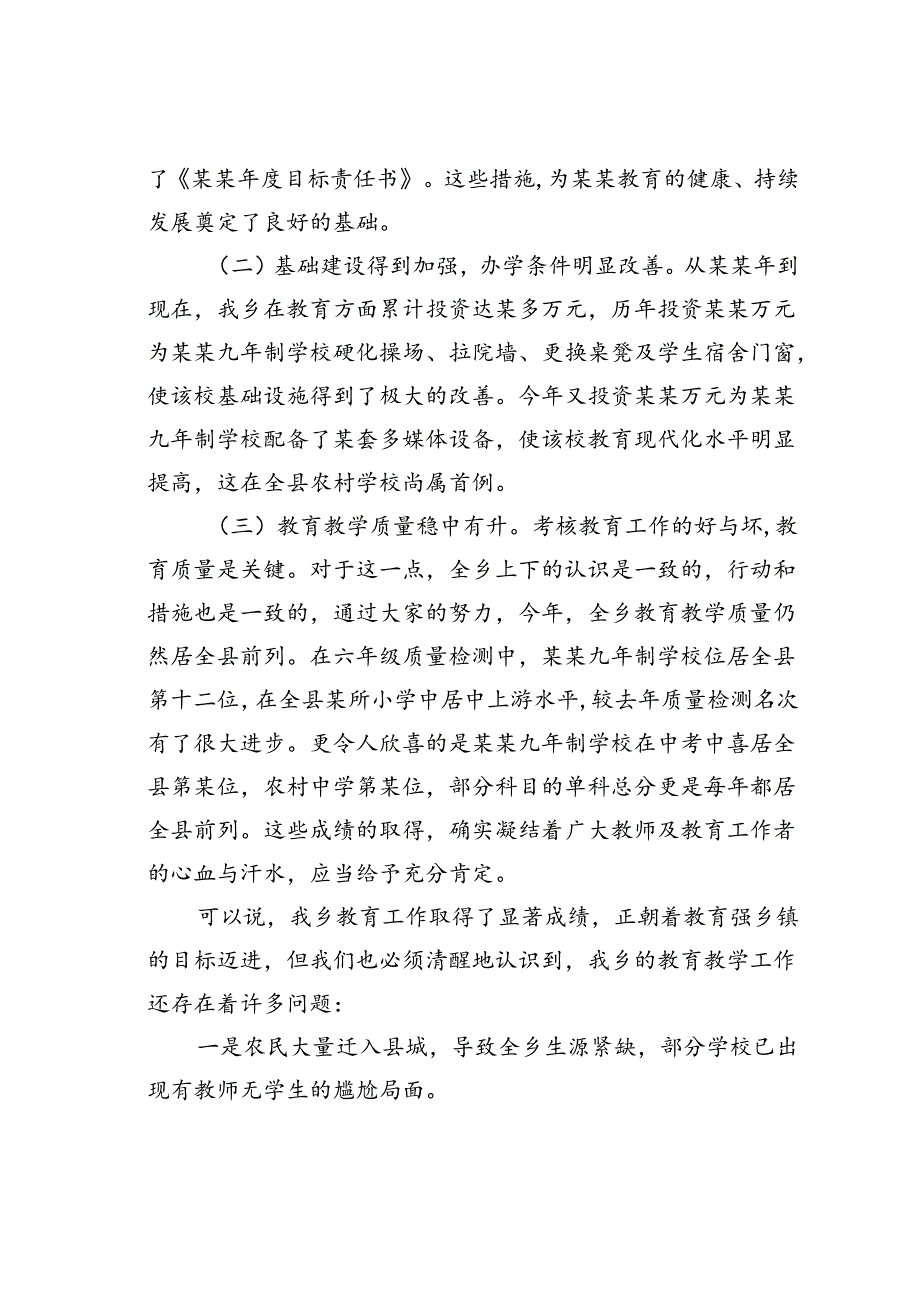 了《某某年度目标责任书》。这些措施,为某某教育的健康、持续
发展奠定了良好的基础。
（二）基础建设得到加强，办学条件明显改善。从某某年到
现在，我乡在教育方面累计投资达某多万元，历年投资某某万元
为某某九年制学校硬化操场、拉院墙、更换桌凳及学生宿舍门窗,
使该校基础设施得到了极大的改善。今年又投资某某万元为某某
九年制学校配备了某套多媒体设备，使该校教育现代化水平明显
提高，这在全县农村学校尚属首例。
（三）教育教学质量稳中有升。考核教育工作的好与坏,教
育质量是关键。对于这一点，全乡上下的认识是一致的，行动和
措施也是一致的，通过大家的努力，今年，全乡教育教学质量仍
然居全县前列。在六年级质量检测中，某某九年制学校位居全县
第十二位,在全县某所小学中居中上游水平,较去年质量检测名次
有了很大进步。更令人欣喜的是某某九年制学校在中考中喜居全
县第某位，农村中学第某位，部分科目的单科总分更是每年都居
全县前列。这些成绩的取得，确实凝结着广大教师及教育工作者
的心血与汗水，应当给予充分肯定。
可以说，我乡教育工作取得了显著成绩，正朝着教育强乡镇
的目标迈进，但我们也必须清醒地认识到，我乡的教育教学工作
还存在着许多问题：
一是农民大量迁入县城，导致全乡生源紧缺，部分学校已出
现有教师无学生的尴尬局面。